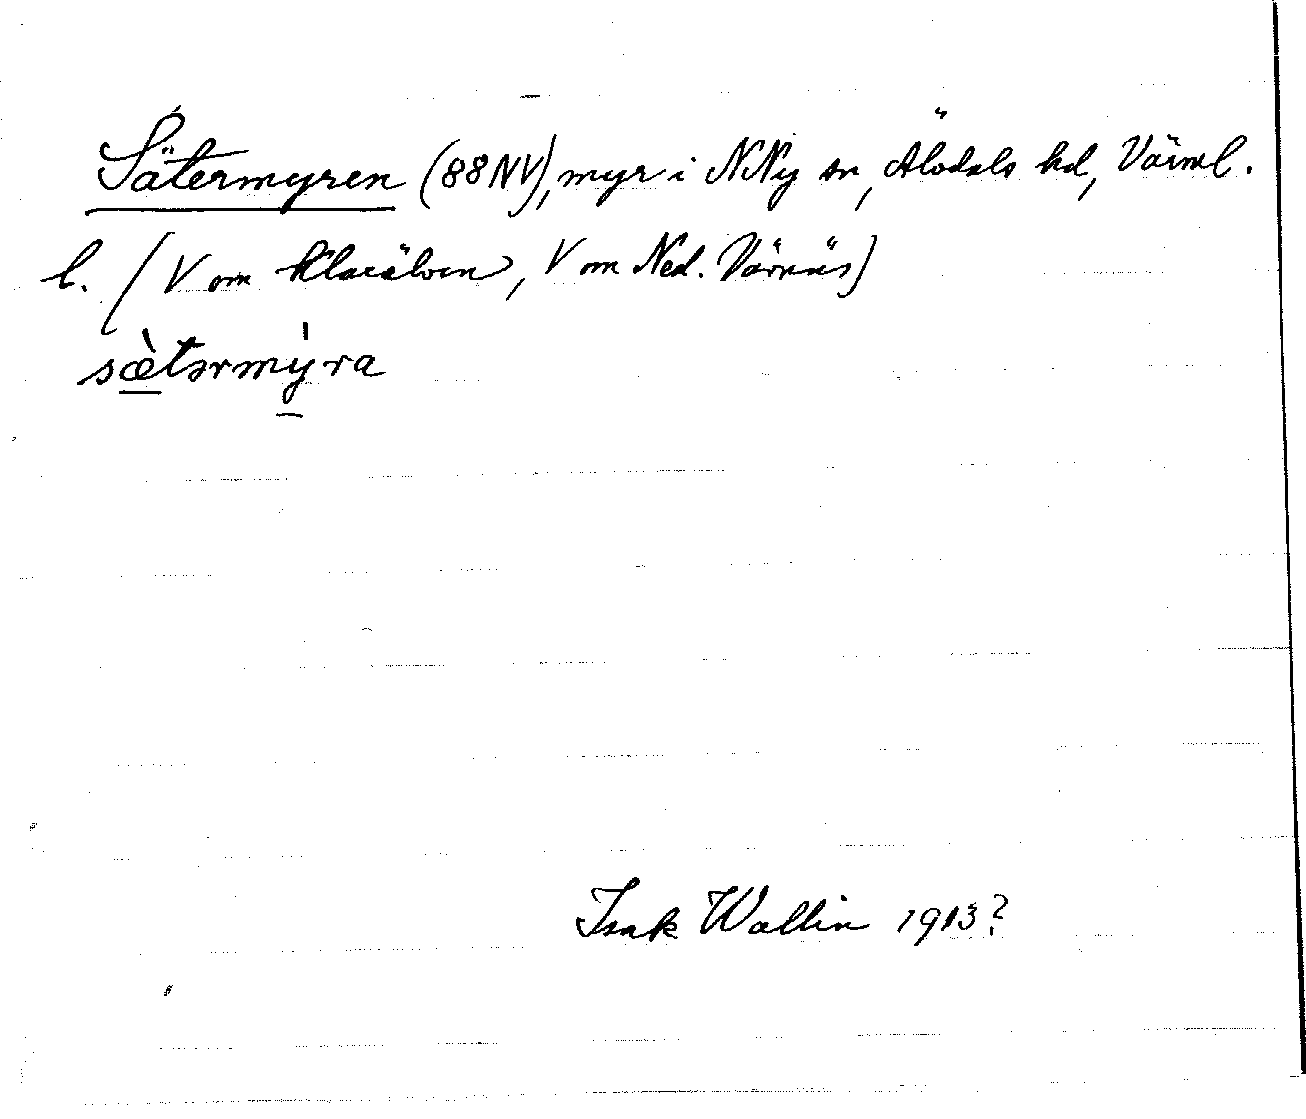 Sätermyren (88NV), myr i NNy sn, Älvdals hd, Värml.
l. (V om Klarälven, V om Ned. Värnäs)
sæ̀tərmỳra
Isak Wallin 1913?